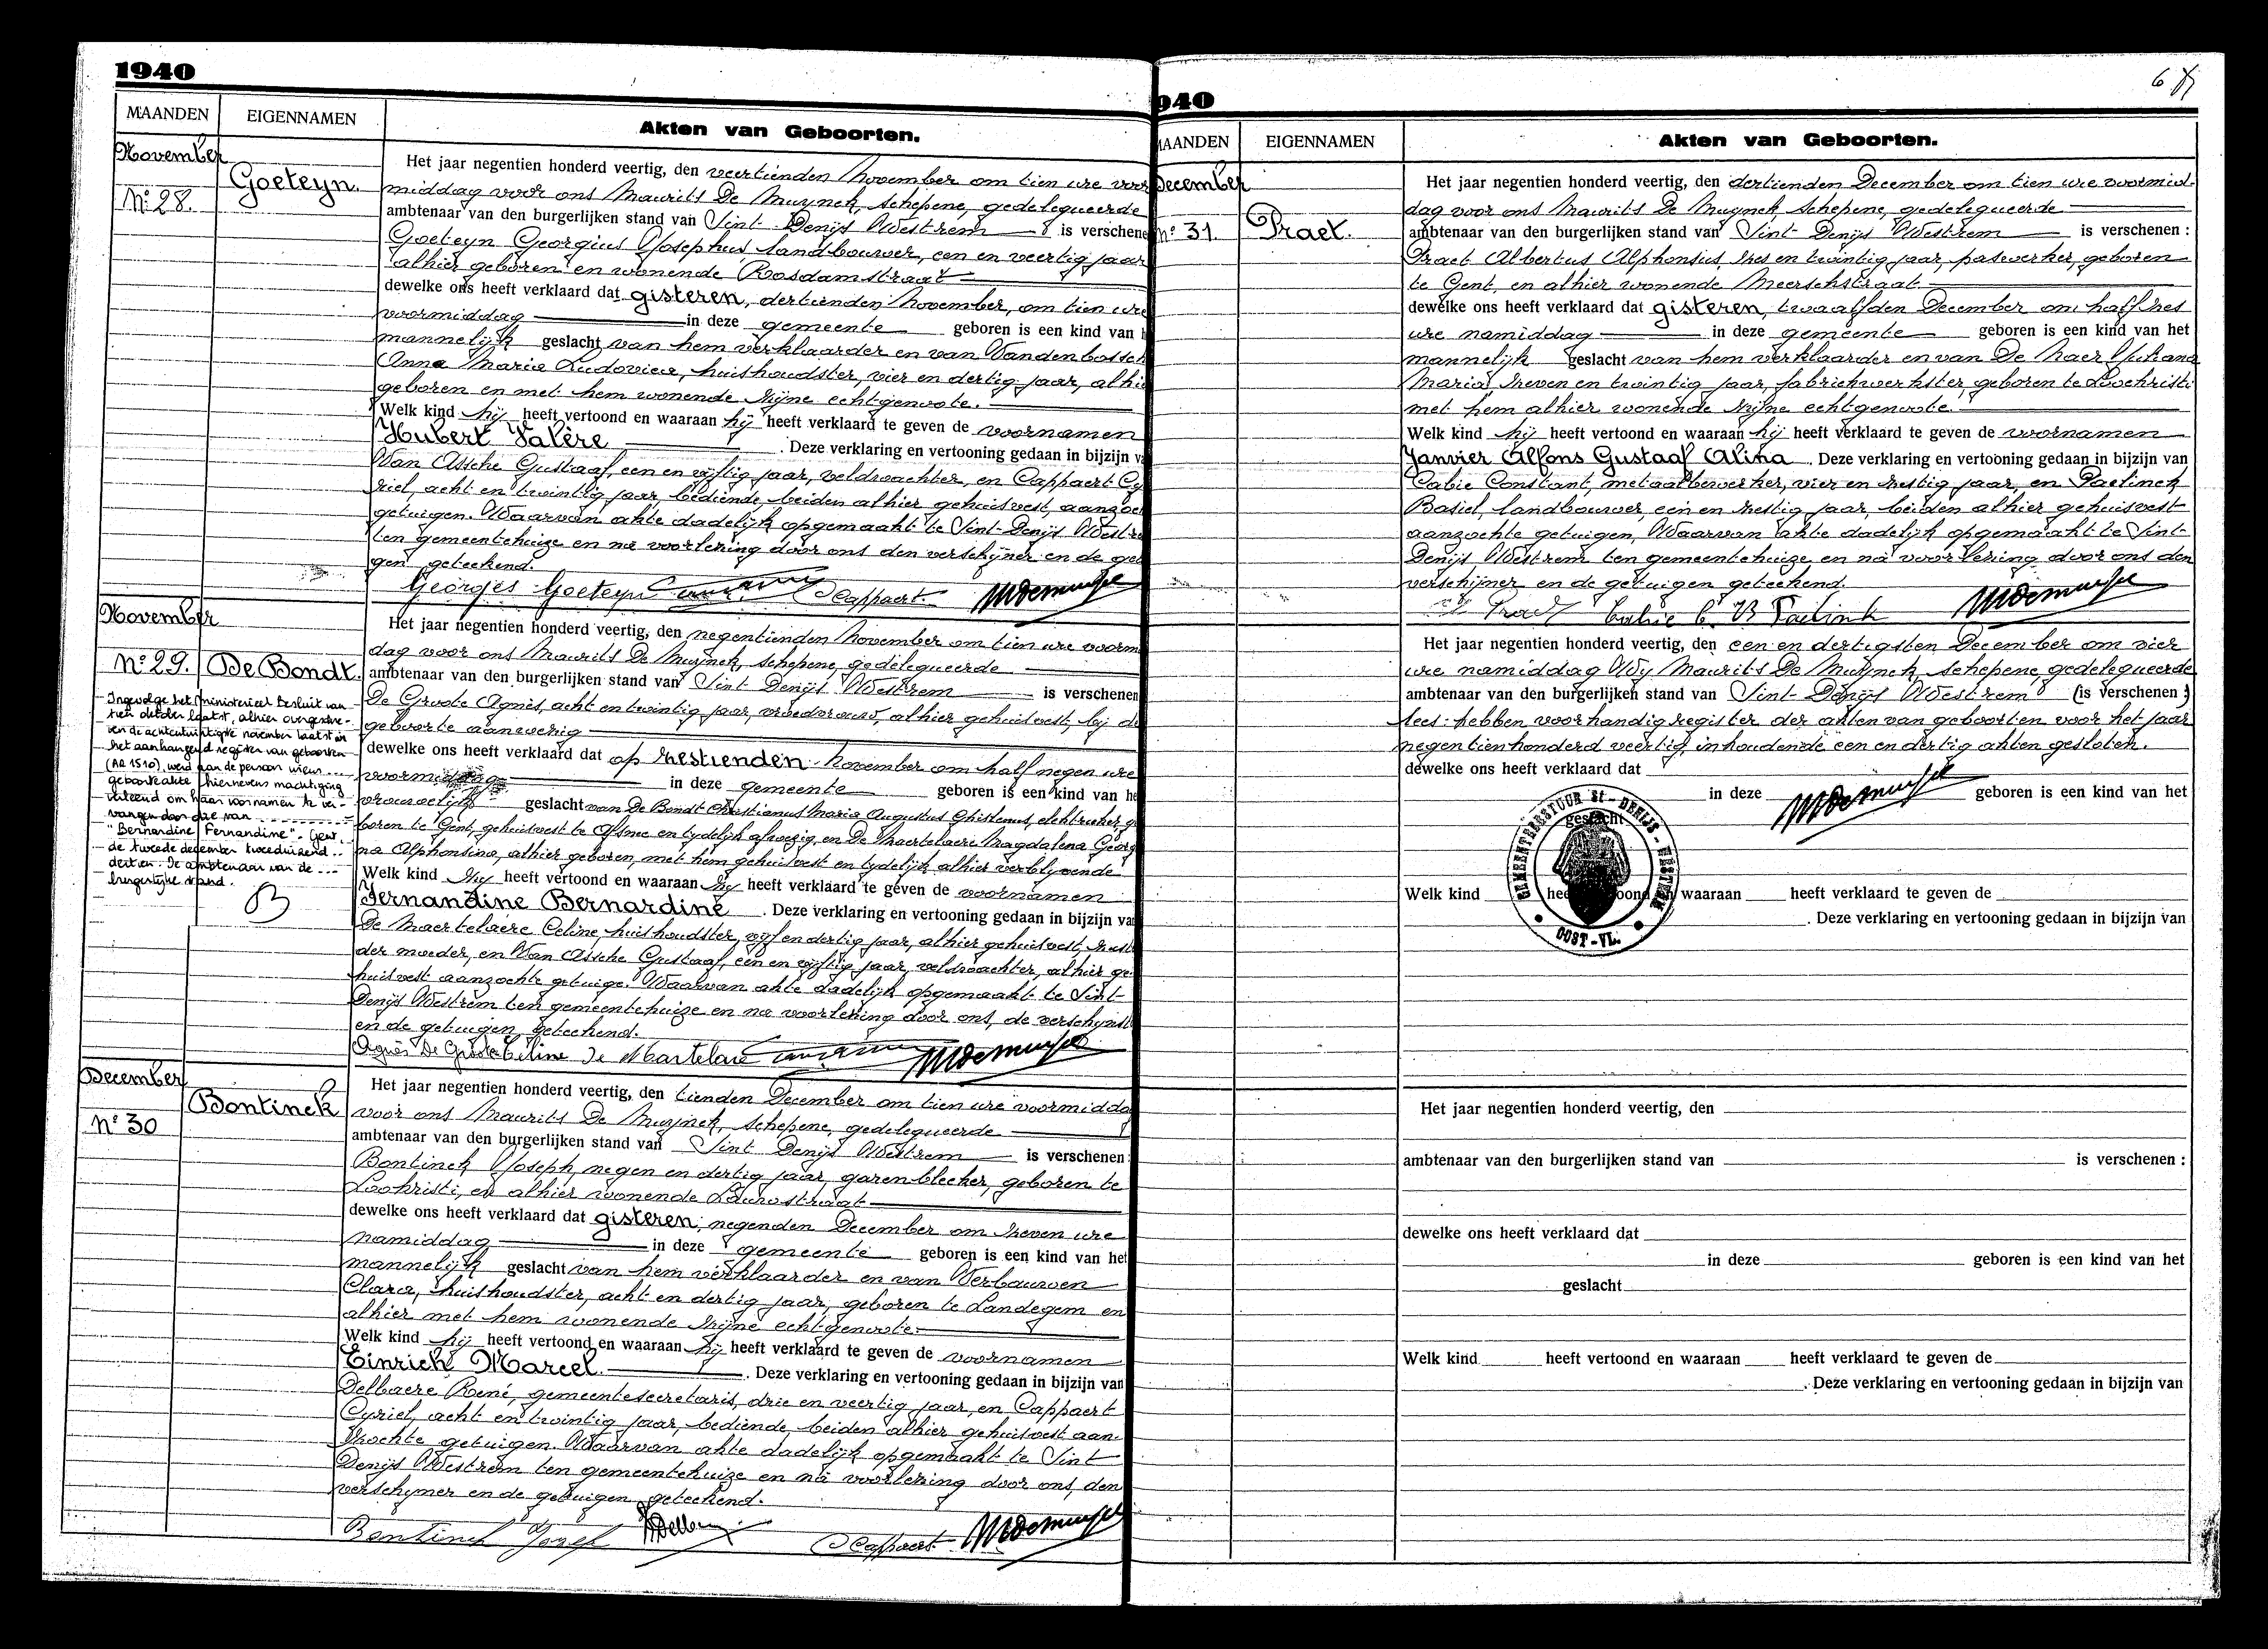 1940
MAANDEN
EIGENNAMEN
Akten van Geboorten.
November
No 28.
Goeteyn.
Het jaar negentien honderd veertig, den veertienden November om tien ure voor
middag voor ons Maurits De Muynck, schepene, gedelegueerde
ambtenaar van den burgerlijken stand van Sint Denijs Westrem is verschene
Goeteyn Georgius Josephus, landbouwer, een en veertig jaar
alhier geboren en wonende Rosdamstraat
dewelke ons heeft verklaard dat gisteren, dertienden November, om tien ure
voormiddag in deze gemeente geboren is een kind van h
mannelijk geslacht van hem verklaarder en van Vandenbossch
Anna Maria Ludovica, huishoudster, vier en dertig jaar, alhi
geboren en met hem wonende zijne echtgenoote.
Welk kind hij heeft vertoond en waaraan hij heeft verklaard te geven de voornamen
Hubert Valère . Deze verklaring en vertooning gedaan in bijzijn va
Van Assche Gustaaf, een en vijftig jaar, veldwachter, en Cappaert Cy
riel, acht en twintig jaar, bediende, beiden alhier gehuisvest, aanzoc
getuigen. Waarvan akte dadelijk opgemaakt te Sint-Denijs Westre
ten gemeentehuize en na voorlezing door ons den verschijner en de get
gen geteekend.
Georges Goeteyn CCappaert MDemuynck
November
No 29.
De Bondt.
Ingevolge het ministerieel besluit van
tien oktober laatst, alhier overgeschre-
ven de achtentwintigste november laatst in
het aanhangend register van geboorten
(AR 1510), werd aan de persoon wiens
geboorteakte hiernevens machtiging
verleend om haar voornamen te ver-
vangen door die van
"Bernardine Fernandine". Gent,
de tweede december tweeduizend
dertien. De ambtenaar van de
burgerlijke stand.
Het jaar negentien honderd veertig, den negentienden November om tien ure voorm
dag voor ons Maurits De Muynck, schepene, gedelegueerde
ambtenaar van den burgerlijken stand van Sint Denijs Westrem is verschenen
De Groote Agnès, acht en twintig jaar, vroedvrouw, alhier gehuisvest, bij de
geboorte aanwezig
dewelke ons heeft verklaard dat op zestienden November om half negen ure
voormiddag in deze gemeente geboren is een kind van he
vrouwelijk geslacht van De Bondt Christianus Maria Augustus Ghislenus, elektrieker, ge
boren te Gent, gehuisvest te Afsnee en tydelijk afwezig, en De Maertelaere Magdalena Georg
na Alphonsina, alhier geboren, met hem gehuisvest en tydelijk alhier verblyvende
Welk kind zij heeft vertoond en waaraan zij heeft verklaard te geven de voornamen
Fernandine Bernardine . Deze verklaring en vertooning gedaan in bijzijn van
De Maertelaere Celine, huishoudster, vijf en dertig jaar, alhier gehuisvest, zust
der moeder, en Van Assche Gustaaf, een en vijftig jaar, veldwachter, alhier ge
huisvest aanzochte getuige. Waarvan akte dadelijk opgemaakt te Sint
Denijs Westrem ten gemeentehuize en na voorlezing door ons, de verschijnst
en de getuigen geteekend.
Agnès De Groote Céline De Martelare MDemuynck
December
No 30
Bontinck
Het jaar negentien honderd veertig, den tienden December om tien ure voormidda
voor ons Maurits De Muynck, schepene, gedelegueerde
ambtenaar van den burgerlijken stand van Sint Denijs Westrem is verschenen:
Bontinck Joseph, negen en dertig jaar, garenbleeker, geboren te
Lochristi, en alhier wonende Lauwstraat
dewelke ons heeft verklaard dat gisteren, negenden December om zeven ure
namiddag in deze gemeente geboren is een kind van het
mannelijk geslacht van hem verklaarder en van Verbauwen
Clara, huishoudster, acht en dertig jaar, geboren te Landegem en
alhier met hem wonende zijne echtgenoote.
Welk kind hij heeft vertoond en waaraan hij heeft verklaard te geven de voornamen
Einrich Marcel. . Deze verklaring en vertooning gedaan in bijzijn van
Delbaere René, gemeentesecretaris, drie en veertig jaar, en Cappaert
Cyriel, acht en twintig jaar, bediende, beiden alhier gehuisvest aan-
zochte getuigen. Waarvan akte dadelijk opgemaakt te Sint
Denijs Westrem ten gemeentehuize en na voorlezing door ons, den
verschijner en de getuigen geteekend.
Bontinck Jozef RDelbaere CCappaert MDemuynck
940
6
AANDEN
EIGENNAMEN
Akten van Geboorten.
December
No 31.
Praet.
Het jaar negentien honderd veertig, den dertienden December om tien ure voormid-
dag voor ons Maurits De Muynck, schepene, gedelegueerde
ambtenaar van den burgerlijken stand van Sint Denijs Westrem is verschenen :
Praet Albertus Alphonsius, zes en twintig jaar, paswerker, geboren
te Gent, en alhier wonende Meerschstraat
dewelke ons heeft verklaard dat gisteren, twaalfden December om half zes
ure namiddag in deze gemeente geboren is een kind van het
mannelijk geslacht van hem verklaarder en van De Naer Juliana
Maria, zeven en twintig jaar, fabriekwerkster, geboren te Loochristi
met hem alhier wonende zijne echtgenoote.
Welk kind hij heeft vertoond en waaraan hij heeft verklaard te geven de voornamen
Janvier Alfons Gustaaf Alina . Deze verklaring en vertooning gedaan in bijzijn van
Calie Constant, metaalbewerker, vier en zestig jaar, en Paelinck
Basiel, landbouwer, een en zestig jaar, beiden alhier gehuisvest
aanzochte getuigen, Waarvan akte dadelijk opgemaakt te Sint-
Denijs Westrem ten gemeentehuize en na voorlezing door ons den
verschijner en de getuigen geteekend.
Praet Calie C. B Paelinck MDemuynck
Het jaar negentien honderd veertig, den een en dertigsten December om vier
ure namiddag Wij Maurits De Muynck, schepene, gedelegueerde
ambtenaar van den burgerlijken stand van Sint-Denijs Westrem (is verschenen :)
lees: hebben voorhandig register der akten van geboorten voor het jaar
negentienhonderd veertig, inhoudende een en dertig akten gesloten.
dewelke ons heeft verklaard dat
in deze geboren is een kind van het
MDemuynck
geslacht
GEMEENTEBESTUUR St - DENIJS - WESTREM
OOST-VL.
Welk kind heeft vertoond en waaraan heeft verklaard te geven de
. Deze verklaring en vertooning gedaan in bijzijn van
Het jaar negentien honderd veertig, den
ambtenaar van den burgerlijken stand van is verschenen :
dewelke ons heeft verklaard dat
in deze geboren is een kind van het
geslacht
Welk kind heeft vertoond en waaraan heeft verklaard te geven de
. Deze verklaring en vertooning gedaan in bijzijn van